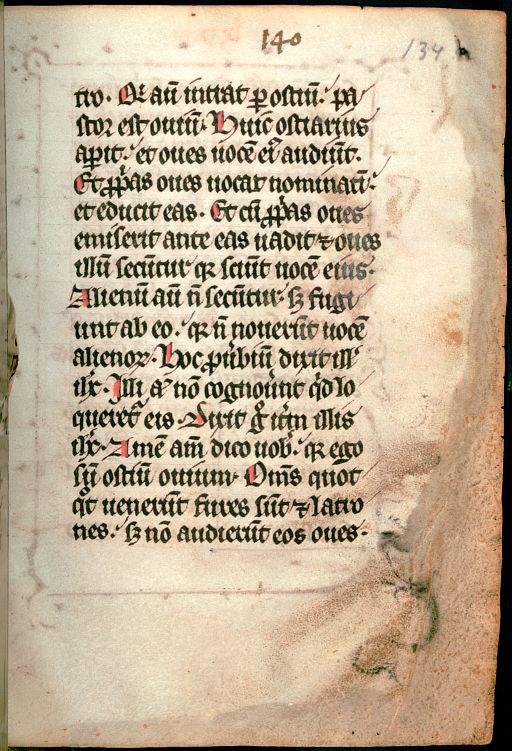 140
134
tro. Qi aū intrat ꝑ ostiū. pa
stor est ouiū. Huic ostiarius
aꝑit. et oues uocē eiꝰ audiūt.
Et ꝓp̃as oues uocat nominatī.
et educit eas. Et cū ꝓp̃as oues
emiserit ante eas uadit ⁊ oues
illū secūtur qꝛ sciūt uocē eius.
Alienū aū ñ secūtur. sꝫ fugi
unt ab eo. qꝛ ñ nouerūt uocē
alienoꝝ. Hoc ꝓuʼbiū dixit ill
ihꝰ. Illi aͥ nō cognouʼunt qͥd lo
queretʼ eis. Dixit gͦ itʼm illis
ihꝰ. Amē am̄ dico uobʼ. qꝛ ego
sū ostiū ouium. Om̄s quot
qͦt uenerūt fures sūt ⁊ latro
nes. sꝫ nō audierūt eos oues.